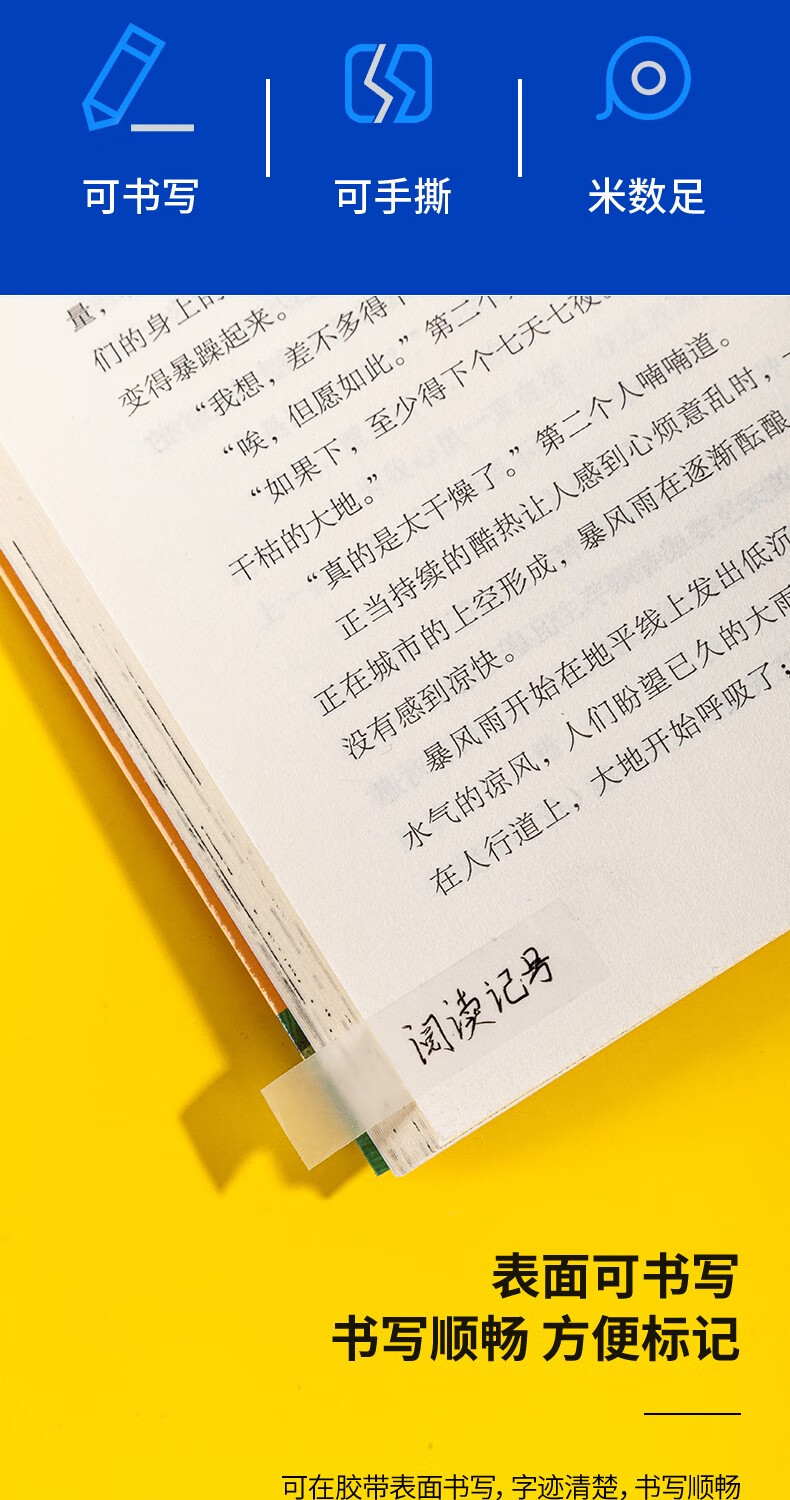 可书写
可手撕
米数足
量，
们的身上的
变得暴躁起来。
“我想，差不多得下
“唉，但愿如此。”第二个
“如果下，至少得下个七天七夜
干枯的大地。”
“真的是太干燥了。”第二个人喃喃道。
正当持续的酷热让人感到心烦意乱时，一
正在城市的上空形成，暴风雨在逐渐酝酿
没有感到凉快。
暴风雨开始在地平线上发出低沉
水气的凉风，人们盼望已久的大雨
在人行道上，大地开始呼吸了；
阅读记号
表面可书写
书写顺畅 方便标记
可在胶带表面书写，字迹清楚，书写顺畅